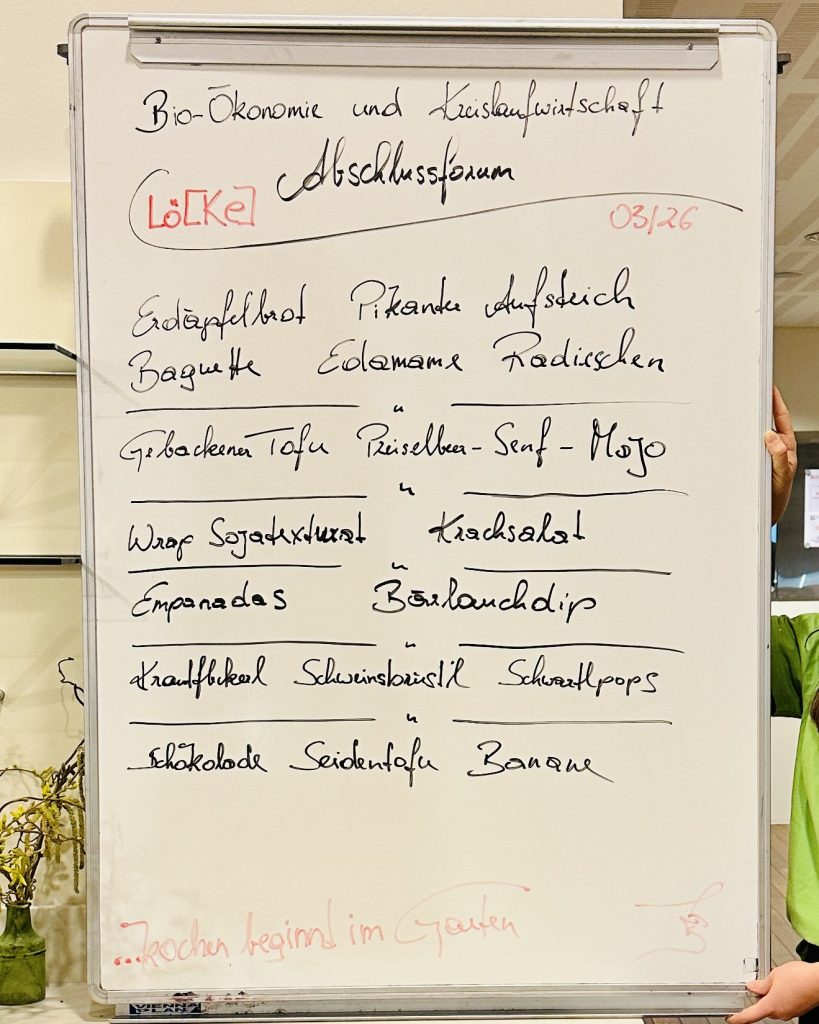 Bio-Ökonomie und Kreislaufwirtschaft
Abschlussforum
Lö[Ke]
03/26
Erdäpfelbrot Pikanter Aufstrich
Baguette Edamame Radieschen
Gebackener Tofu Preiselbeer-Senf-Mojo
Wrap Sojatexturat Krachsalat
Empanadas Bärlauchdip
Krautfleckerl Schweinsbrüstl Schwartlpops
Schokolade Seidentofu Banane
...kochen beginnt im Garten
VIENNA